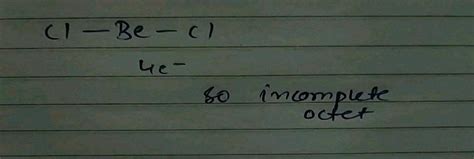 Cl — Be — Cl
4e-
so incomplete
octet